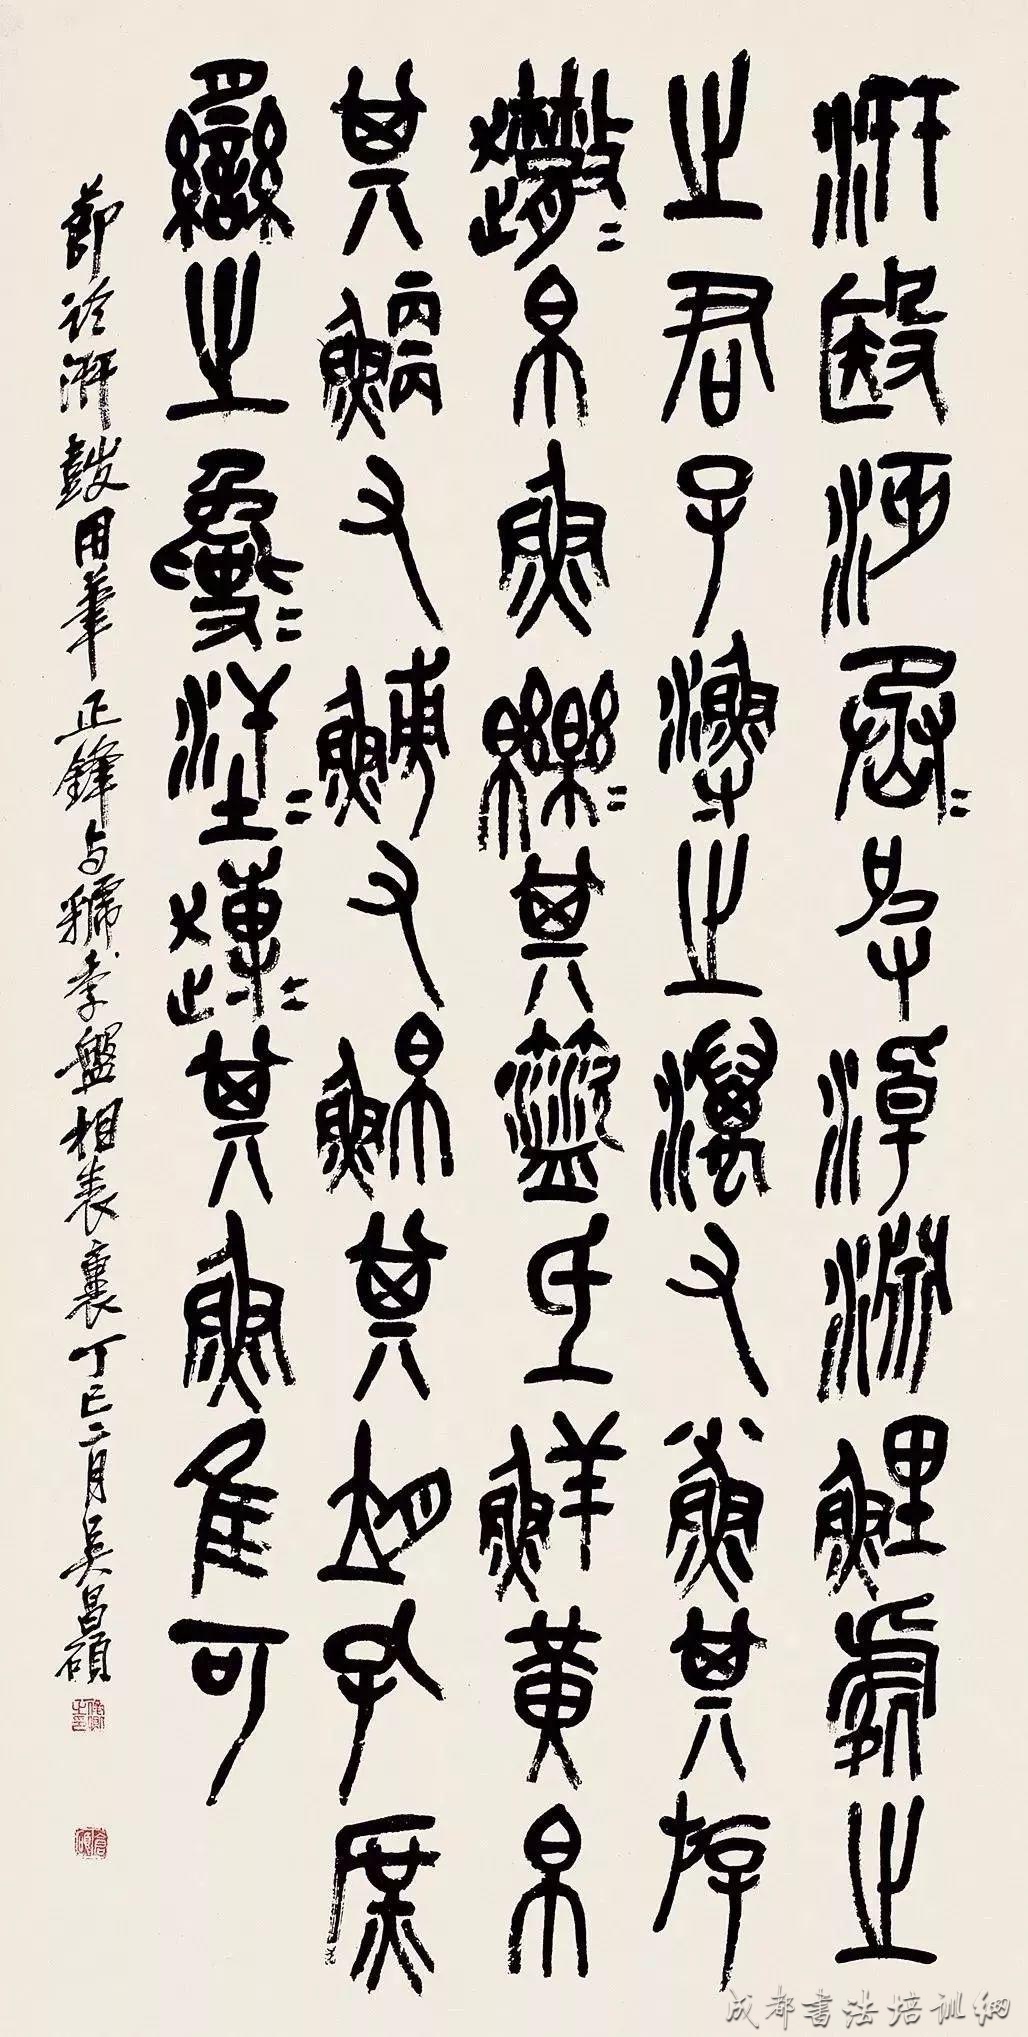 汧殹沔烝=皮淖淵鯉處之
之君子漁之澫又小魚其斿
䟃=帛魚皪=其盜氐鮮黃帛
其鯾又鱄又鮊其孔庶
臠之=洋=趩=其魚隹可
節臨汧鼓用筆正鋒与虢季盤相表裏丁巳二月吳昌碩
成都書法培訓網